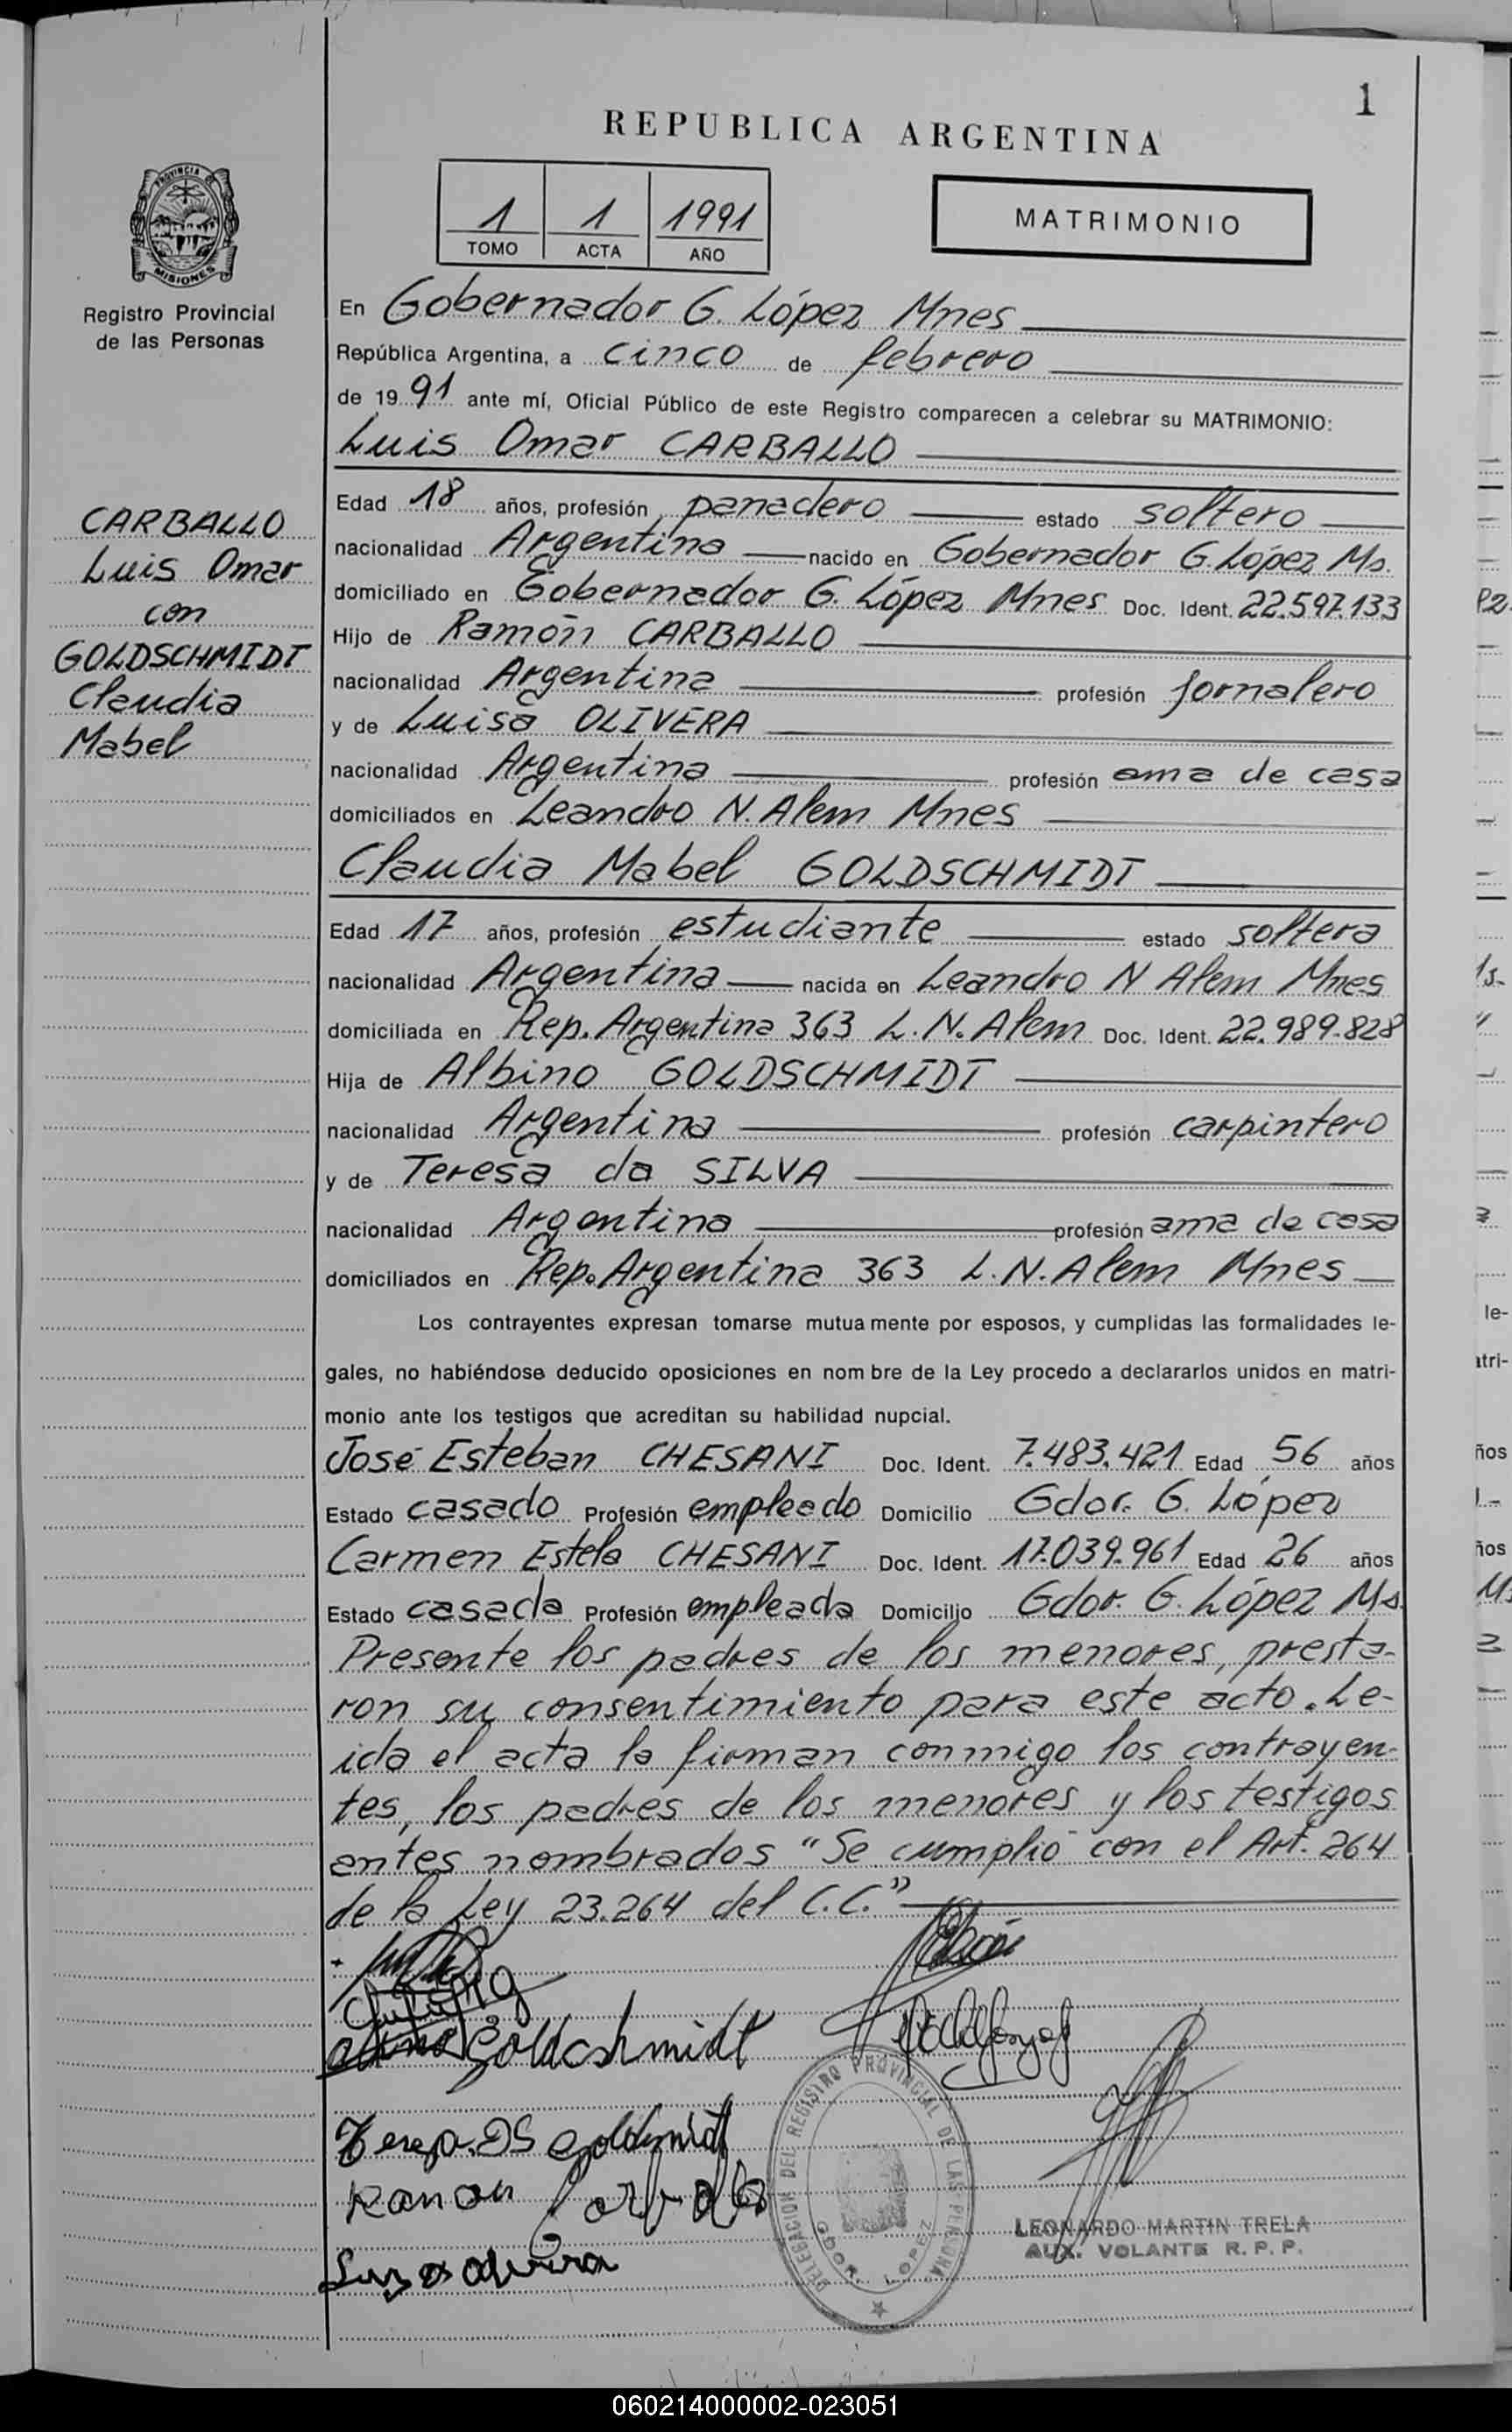 1
REPUBLICA ARGENTINA
1 1 1991
TOMO ACTA AÑO
MATRIMONIO
PROVINCIA DE
MISIONES
Registro Provincial
de las Personas
CARBALLO
Luis Omar
con
GOLDSCHMIDT
Claudia
Mabel
En Gobernador G. López Mnes
República Argentina, a cinco de febrero
de 1991 ante mí, Oficial Público de este Registro comparecen a celebrar su MATRIMONIO:
Luis Omar CARBALLO
Edad 18 años, profesión panadero estado soltero
nacionalidad Argentina nacido en Gobernador G. López Ms.
domiciliado en Gobernador G. López Mnes Doc. Ident. 22.597.133
Hijo de Ramón CARBALLO
nacionalidad Argentina profesión jornalero
y de Luisa OLIVERA
nacionalidad Argentina profesión ama de casa
domiciliados en Leandro N. Alem Mnes
Claudia Mabel GOLDSCHMIDT
Edad 17 años, profesión estudiante estado soltera
nacionalidad Argentina nacida en Leandro N Alem Mnes
domiciliada en Rep. Argentina 363 L. N. Alem Doc. Ident. 22.989.828
Hija de Albino GOLDSCHMIDT
nacionalidad Argentina profesión carpintero
y de Teresa da SILVA
nacionalidad Argentina profesión ama de casa
domiciliados en Rep. Argentina 363 L.N. Alem Mnes
Los contrayentes expresan tomarse mutuamente por esposos, y cumplidas las formalidades le-
gales, no habiéndose deducido oposiciones en nombre de la Ley procedo a declararlos unidos en matri-
monio ante los testigos que acreditan su habilidad nupcial.
José Esteban CHESANI Doc. Ident. 7.483.421 Edad 56 años
Estado casado Profesión empleado Domicilio Gdor. G. López
Carmen Estela CHESANI Doc. Ident. 17.039.961 Edad 26 años
Estado casada Profesión empleada Domicilio Gdor. G. López Ms.
Presente los padres de los menores, presta-
ron su consentimiento para este acto. Le-
ida el acta la firman conmigo los contrayen-
tes, los padres de los menores y los testigos
antes nombrados "Se cumplió con el Art. 264
de la Ley 23.264 del C.C."
Goldcshmidt
Ramon Carballo
DELEGACION DEL REGISTRO PROVINCIAL DE LAS PERSONAS
GDOR. LOPEZ
LEONARDO MARTIN TRELA
AUX. VOLANTE R. P. P.
060214000002-023051